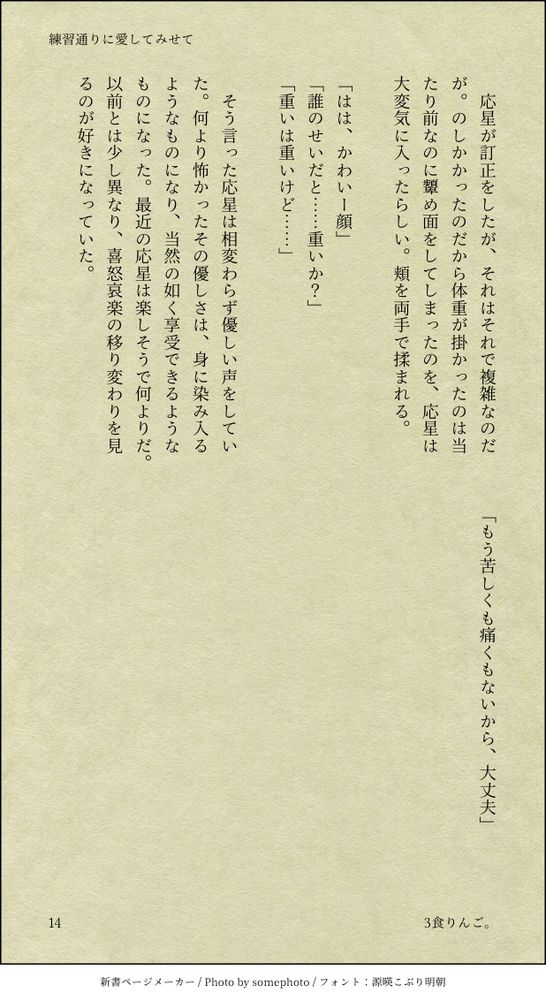 練習通りに愛してみせて
応星が訂正をしたが、それはそれで複雑なのだ
が。のしかかったのだから体重が掛かったのは当
たり前なのに顰め面をしてしまったのを、応星は
大変気に入ったらしい。頬を両手で揉まれる。
「はは、かわいー顔」
「誰のせいだと……重いか？」
「重いは重いけど……」
そう言った応星は相変わらず優しい声をしてい
た。何より怖かったその優しさは、身に染み入る
ようなものになり、当然の如く享受できるような
ものになった。最近の応星は楽しそうで何よりだ。
以前とは少し異なり、喜怒哀楽の移り変わりを見
るのが好きになっていた。
「もう苦しくも痛くもないから、大丈夫」
14
3食りんご。
新書ページメーカー / Photo by somephoto / フォント：源暎こぶり明朝